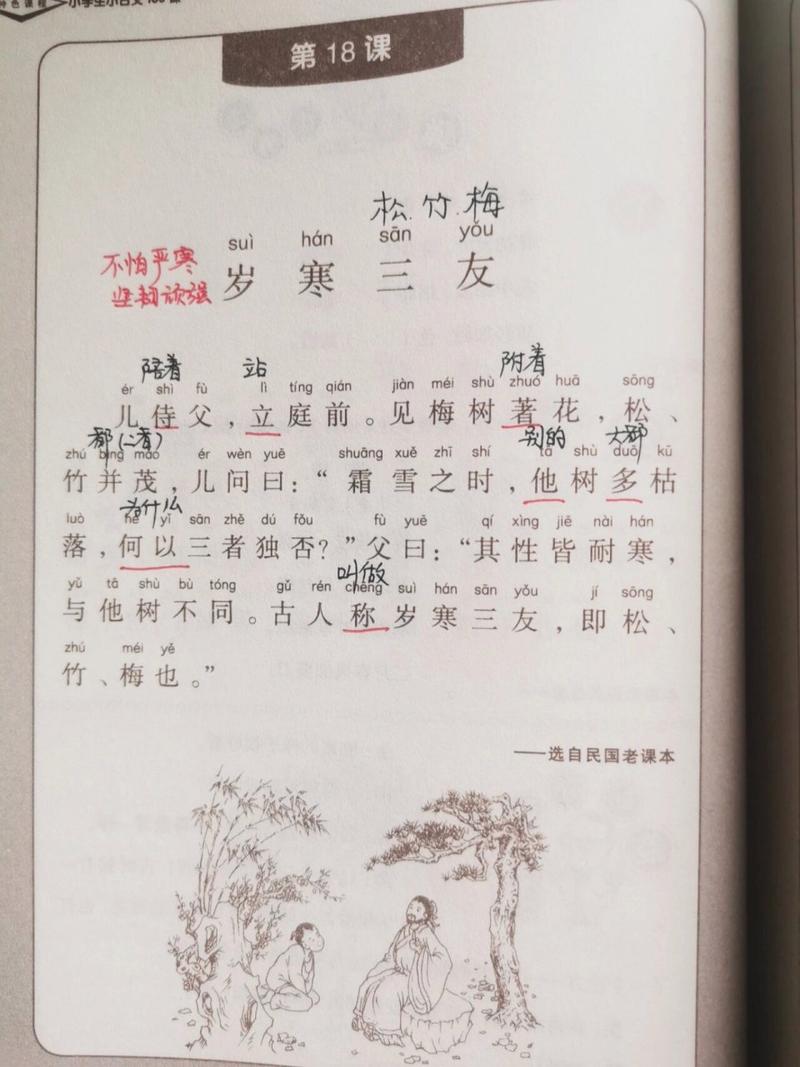 特色课程 小学生小古文100课
第18课
松.竹.梅
suì hán sān yǒu
不怕严寒
坚韧顽强
岁寒三友
陪着 站 附着
ér shì fù lì tíng qián jiàn méi shù zhuó huā sōng
儿侍父，立庭前。见梅树著花，松、
都(二者) 别的 大都
zhú bìng mào ér wèn yuē shuāng xuě zhī shí tā shù duō kū
竹并茂，儿问曰：“霜雪之时，他树多枯
为什么
luò hé yǐ sān zhě dú fǒu fù yuē qí xìng jiē nài hán
落，何以三者独否？”父曰：“其性皆耐寒，
叫做
yǔ tā shù bù tóng gǔ rén chēng suì hán sān yǒu jí sōng
与他树不同。古人称岁寒三友，即松、
zhú méi yě
竹、梅也。”
——选自民国老课本